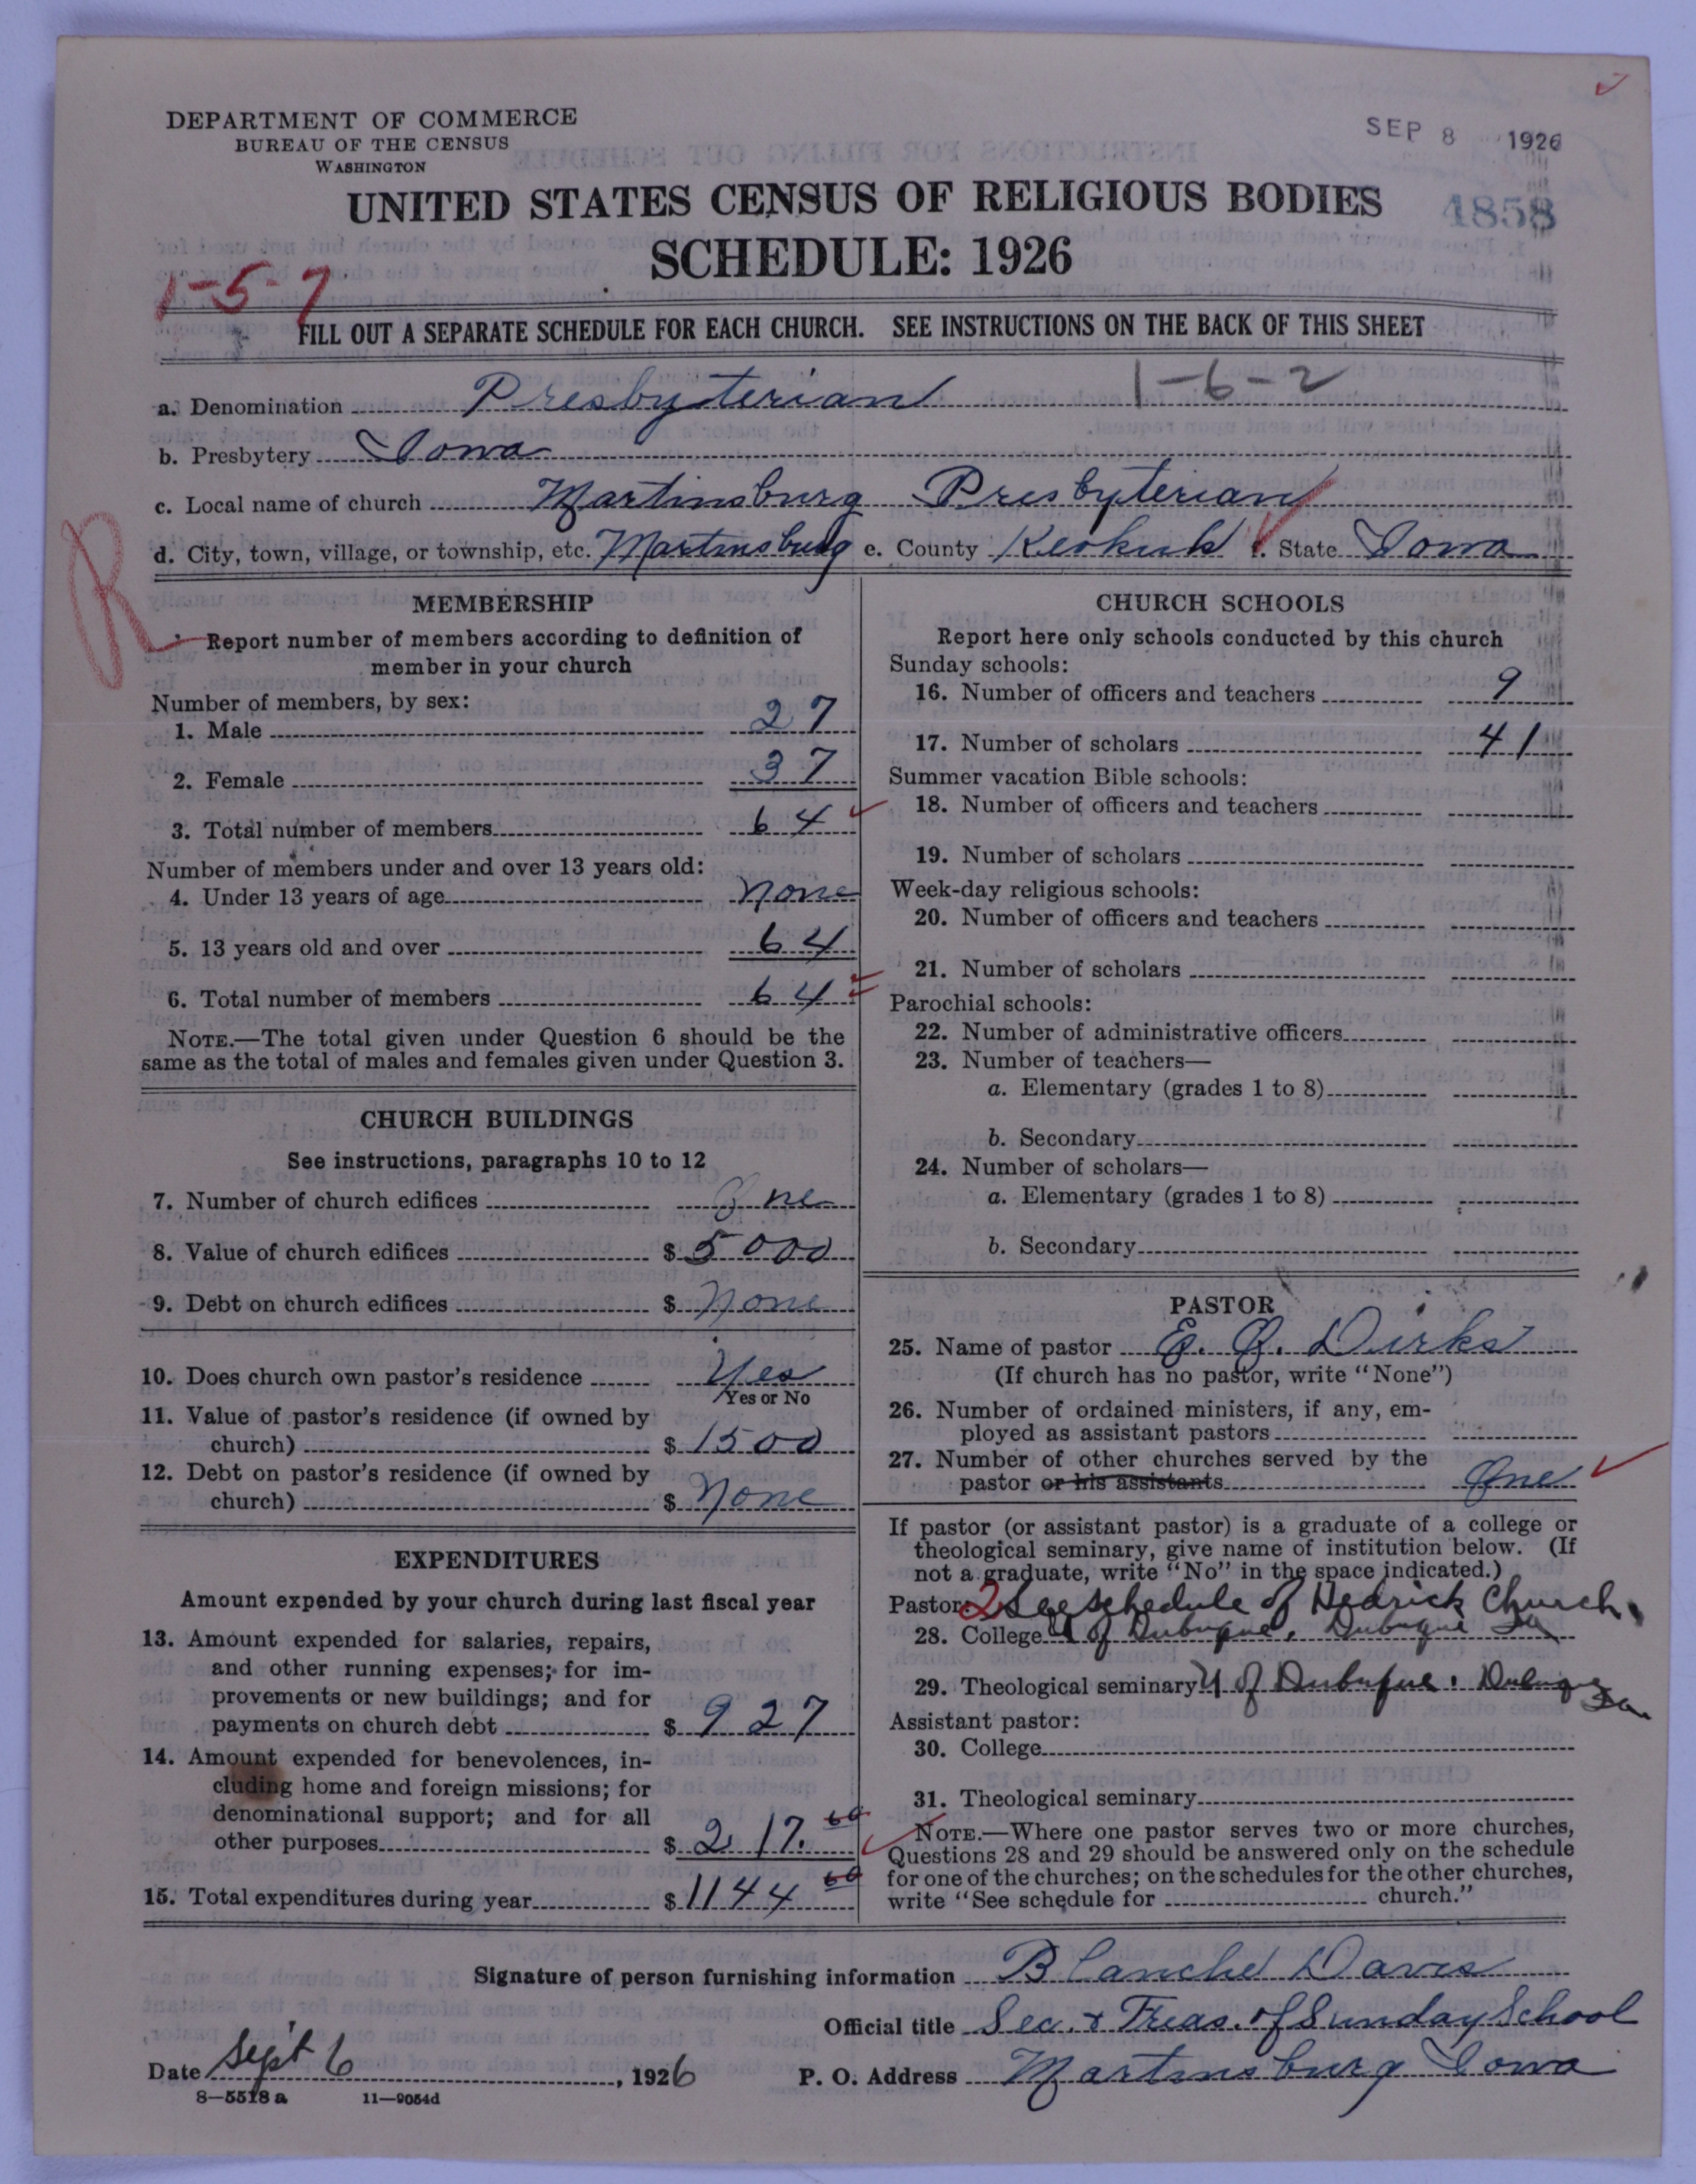 DEPARTMENT OF COMMERCE
BUREAU OF THE CENSUS
WASHINGTON
SEP 8 1926
UNITED STATES CENSUS OF RELIGIOUS BODIES
4858
SCHEDULE: 1926
1-5-7
FILL OUT A SEPARATE SCHEDULE FOR EACH CHURCH. SEE INSTRUCTIONS ON THE BACK OF THIS SHEET
1-6-2
a. Denomination Presbyterian
b. Presbytery Iowa
c. Local name of church Martinsburg Presbyterian
d. City, town, village, or township, etc. Martinsburg e. County Keokuk f. State Iowa
R
MEMBERSHIP
Report number of members according to definition of
member in your church
Number of members, by sex:
1. Male 27
2. Female 37
3. Total number of members 64
Number of members under and over 13 years old:
4. Under 13 years of age none
5. 13 years old and over 64
6. Total number of members 64
NOTE.—The total given under Question 6 should be the
same as the total of males and females given under Question 3.
CHURCH BUILDINGS
See instructions, paragraphs 10 to 12
7. Number of church edifices One
8. Value of church edifices $ 5000
9. Debt on church edifices $ None
10. Does church own pastor's residence Yes
Yes or No
11. Value of pastor's residence (if owned by
church) $ 1500
12. Debt on pastor's residence (if owned by
church) $ None
EXPENDITURES
Amount expended by your church during last fiscal year
13. Amount expended for salaries, repairs,
and other running expenses; for im-
provements or new buildings; and for
payments on church debt $ 927
14. Amount expended for benevolences, in-
cluding home and foreign missions; for
denominational support; and for all
other purposes $ 217.60
15. Total expenditures during year $ 1144 60
CHURCH SCHOOLS
Report here only schools conducted by this church
Sunday schools:
16. Number of officers and teachers 9
17. Number of scholars 41
Summer vacation Bible schools:
18. Number of officers and teachers
19. Number of scholars
Week-day religious schools:
20. Number of officers and teachers
21. Number of scholars
Parochial schools:
22. Number of administrative officers
23. Number of teachers—
a. Elementary (grades 1 to 8)
b. Secondary
24. Number of scholars—
a. Elementary (grades 1 to 8)
b. Secondary
PASTOR
25. Name of pastor Dirks
(If church has no pastor, write "None")
26. Number of ordained ministers, if any, em-
ployed as assistant pastors
27. Number of other churches served by the
pastor or his assistants One
If pastor (or assistant pastor) is a graduate of a college or
theological seminary, give name of institution below. (If
not a graduate, write "No" in the space indicated.)
Pastor: 2 See schedule of Hedrick Church
28. College U of Dubuque, Dubuque Ia
29. Theological seminary U of Dubuque. Dubuque Ia
Assistant pastor:
30. College
31. Theological seminary
NOTE.—Where one pastor serves two or more churches,
Questions 28 and 29 should be answered only on the schedule
for one of the churches; on the schedules for the other churches,
write "See schedule for church."
Signature of person furnishing information Blanche Davis
Official title Sec. & Treas. of Sunday School
Date Sept 6, 1926 P. O. Address Martinsburg Iowa
8—5518 a 11—9054d